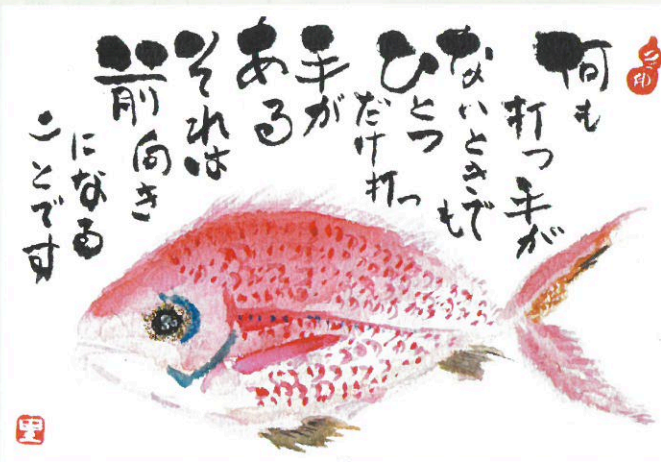 何も
打つ手が
ないときでも
ひとつ
だけ打つ
手が
ある
それは
前向き
になる
ことです
里